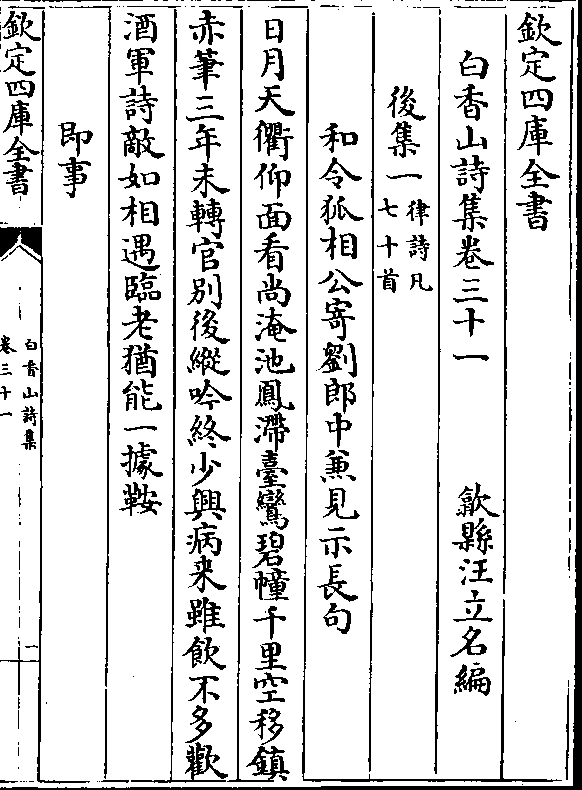 欽定四庫全書
白香山詩集卷三十一 歙縣汪立名編
後集一 律詩凡七十首
和令狐相公寄劉郎中兼見示長句
日月天衢仰面看尚淹池鳳滯臺鸞碧幢千里空移鎮
赤筆三年未轉官別後縱吟終少興病来雖飲不多歡
酒軍詩敵如相遇臨老猶能一據鞍
即事
欽定四庫全書
白香山詩集
卷三十一
一